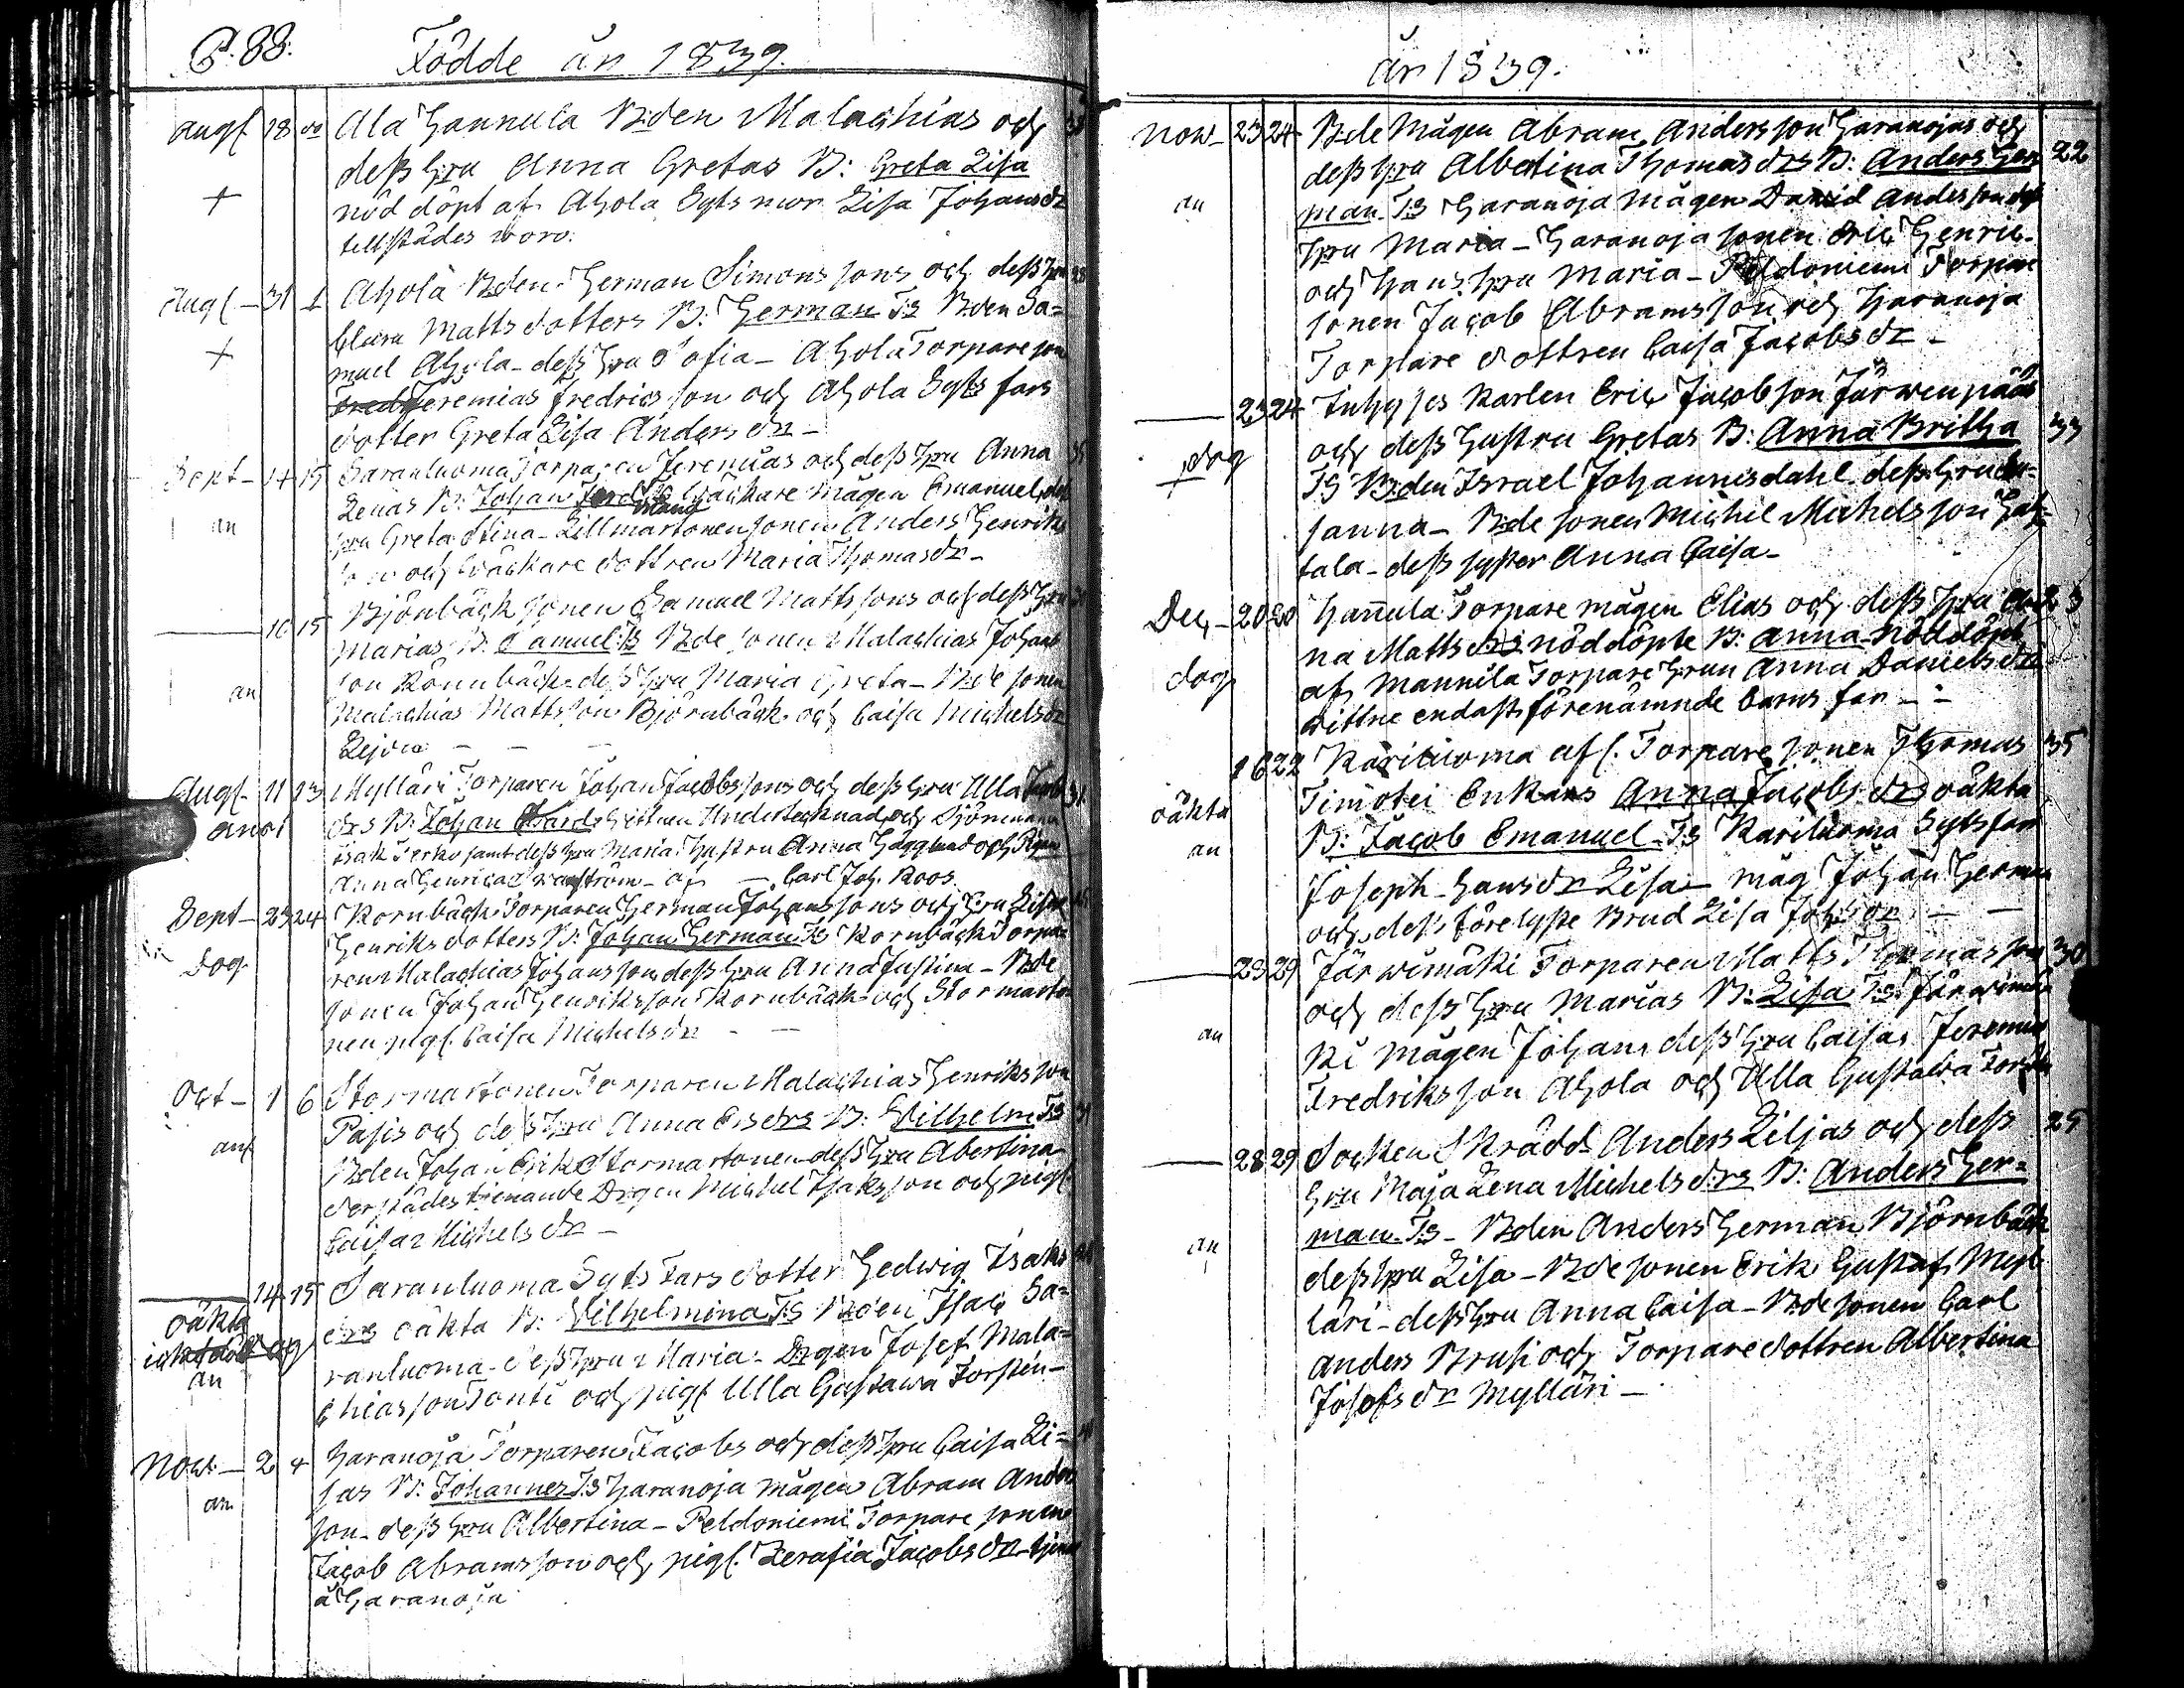 P. 88.
Födde år 1839.
augs 18 do Ala Hannula Bden Malachias och
dess hru Anna Gretas B: Greta Lisa
+ nöd döpt af Ahola Sytsmor Lisa Johansdr
tillstädes woro.
Augs - 31 1 Ahola Bden Herman Simons sons och dess hru
Clara Mattsdotters B: Herman Ts Bden Sa=
+ muel Ahola - dess hru Sofia - Ahola Torpare son
Jeremias Fredricsson och Ahola Syts fars
dotter Greta Lisa Andersdr -
Sept - 14 15 Saranluoma Torparen Jeremias och dess hru Anna
Lenas B: Johan Ts Wäckare mågen Emanuel dess
an hru Greta Stina - Lillmartonen sonen Anders Henriks
son och Wäckare dottren Maria Thomasdr -
10 15 Björnbäck sonen Samuel Mattssons och dess hru
Marias B. Samuel Ts Bde sonen Malachias Johans
son Rönnbäck dess hru Maria Greta - Bde sonen
an Malachias Mattsson Björnbäck och Caisa Michelsdr
Augs - 11 13 Mylläri Torparen Johan Jacobssons och dess hru Ulla
drs B. Johan Undertecknad och
Isak samt dess hru Maria. Hustru Anna Häggblad och
Anna Henrica - af - Carl Joh. Roos.
Sept - 23 24 Kornbäck Torparen Herman Johanssons och hru Lisas
Henriksdotters B: Johan Herman Ts Kornbäck Torpa
Dog ren Malachias Johansson dess hru Anna Justina - Bde
sonen Johan Henriksson Kornbäck och Stormarto
nen pigs. Caisa Michelsdr - -
Oct - 1 6 Stormartonen Torparen Malachias Henriksson
Pasis och dess hru Anna Ersdrs B: Wilhelm Ts
an Bden Johan Erik Stormartonen dess hru Abertina
derstädes tienande Drgen Michel Isaksson och pigs
Caisa Michelsdr -
14 15 Saranluoma Syts Fars dotter Hedwig Isaks
oäkta drs oäkta B: Wilhelmina Ts Bden Isac Sa=
ranluoma - dess hru Maria - Drgen Josef Mala=
an chiasson Tonti och pigs Ulla Gustawa Torstén -
Now - 2 4 Haranoja Torparen Jacobs och dess hru Caisa Li=
sas B: Johannes Ts Haranoja mågen Abram Anders
an son - dess hru Albertina - Peldoniemi Torpare sonen
Jacob Abramsson och pigs. Serafia Jacobsdr
å Haranoja
år 1839.
Now - 23 24 Bde Mågen Abram Andersson Haranojas och
dess hru Albertina Thomasdrs B: Anders Her 22
an man Ts Haranoja Mågen David Andersson dess
hru Maria - Haranoja sonen Eric Henric-
och hans hru Maria - Peldoniemi Torpare
sonen Jacob Abramsson och Haranoja
Torpare dottren Caisa Jacobsdr -
23 24 Inhyses Karlen Eric Jacobson Järwenpääs
dog och dess Hustru Gretas B: Anna Britha 33
Ts Bden Israel Johannisdahl - dess hru Su=
sanna - Bde sonen Michel Michelsson
tala - dess syster Anna Caisa -
Dec - 20 20 Hannula Torpare mågen Elias och dess hru An 23
na Mattsdrs nöddöpte B: Anna nöddöpt
dog af Mannila Torpare hrun Anna Danielsdr
wittne endast förenämnde barns far - -
16 22 Kariluoma afs. Torpare sonen Thomas 35
oäkta Timotei Enkans Anna Jacobsdrs oäkta
an B: Jacob Emanuel Ts Kariluoma Sytsfar
Joseph Hansdr Lisa - måg Johan Herman
och dess förelyste Brud Lisa - -
29 29 Järwimäki Torparen Matts Thomasson 30
och dess hru Marias B: Lisa Ts. Järwimä
an ki Mågen Johan, dess hru Caisa, Jeremias
Fredriksson Ahola och Ulla Gustawa
28 29 Socken Skrädd. Anders Liljas och dess 25
hru Maja Lena Michelsdrs B: Anders Her=
an man Ts - Bden Anders Herman Björnbäck
dess hru Lisa - Bde sonen Erik Gustaf Myl
läri - dess hru Anna Caisa - Bde sonen Carl
Anders Brusi och Torpare dottren Albertina
Josefsdr Mylläri -